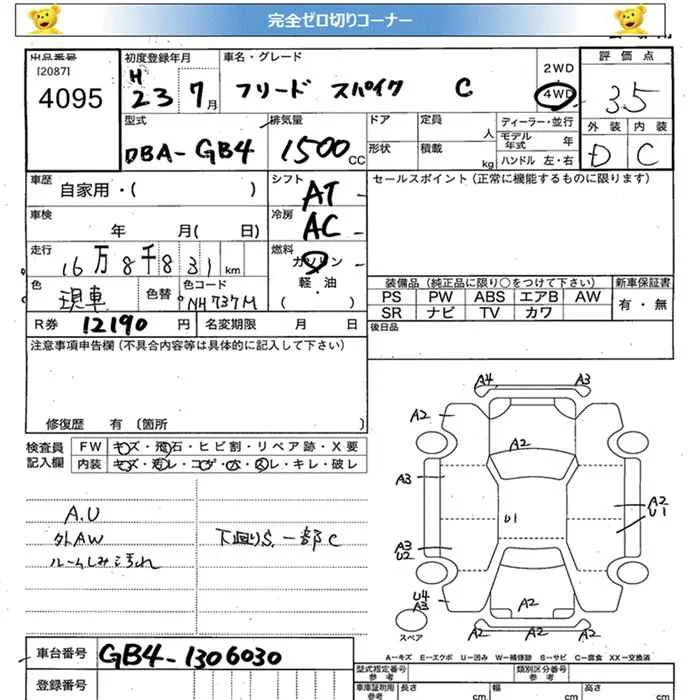 完全ゼロ切りコーナー
出品番号 初度登録年月 車名・グレード 評価点
[2087] 4095
H 23 7月 フリード スパイク C 2WD 4WD 3.5
型式 排気量 ドア 定員 人 ディーラー・並行 外装 内装
DBA-GB4 1500 CC 形状 積載 kg モデル年式 年 ハンドル 左・右 D C
車歴 自家用・( ) シフト AT セールスポイント(正常に機能するものに限ります)
車検 年 月( 日) 冷房 AC
走行 16万8千831km 燃料 ガソリン 軽油 ( )
色 現車 色替 色コード NH737M 装備品(純正品に限り○をつけて下さい) 新車保証書
PS PW ABS エアB AW 有・無
SR ナビ TV カワ
R券 12190円 名変期限 月 日 後日品
注意事項申告欄(不具合内容等は具体的に記入して下さい)
修復歴 有〔箇所 〕
検査員記入欄 FW キズ・飛石・ヒビ割・リペア跡・X要
内装 キズ・汚レ・コゲ・穴・スレ・キレ・破レ
A.U
外AW 下廻りS.一部C
ルームしみ汚れ
A4 A3
A2
A2
A3
U1 A2 U1
A3 U2
U4 A3 A2
A2 A2
スペア
A―キズ E―エクボ U―凹み W―補修跡 S―サビ C―腐食 XX―交換済
車台番号 GB4-1306030
型式指定番号 参考 類別区分番号 参考
登録番号 車庫証明用参考 長さ cm 幅 cm 高さ cm